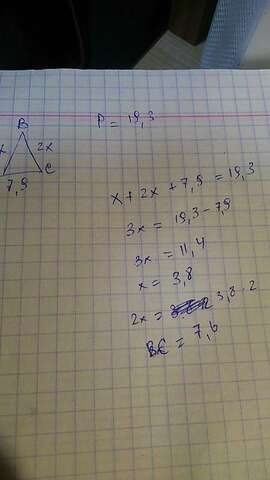 P = 19,3
B
x 2x
C
7,9
x + 2x + 7,9 = 19,3
3x = 19,3 - 7,9
3x = 11,4
x = 3,8
2x = 3,8 · 2
BC = 7,6